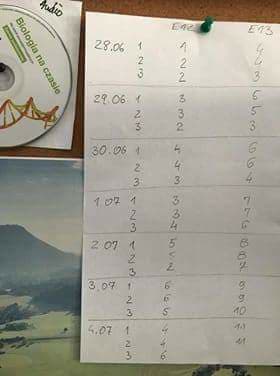 Audio
Biologia na czasie
E12 E13
28.06 1 1 4
2 2 4
3 2 3
29.06 1 3 5
2 3 5
3 2 3
30.06 1 4 6
2 4 6
3 3 4
1.07 1 3 7
2 3 7
3 4 6
2.07 1 5 8
2 5 8
3 2 7
3.07 1 6 9
2 6 9
3 5 10
4.07 1 4 11
2 4 11
3 6